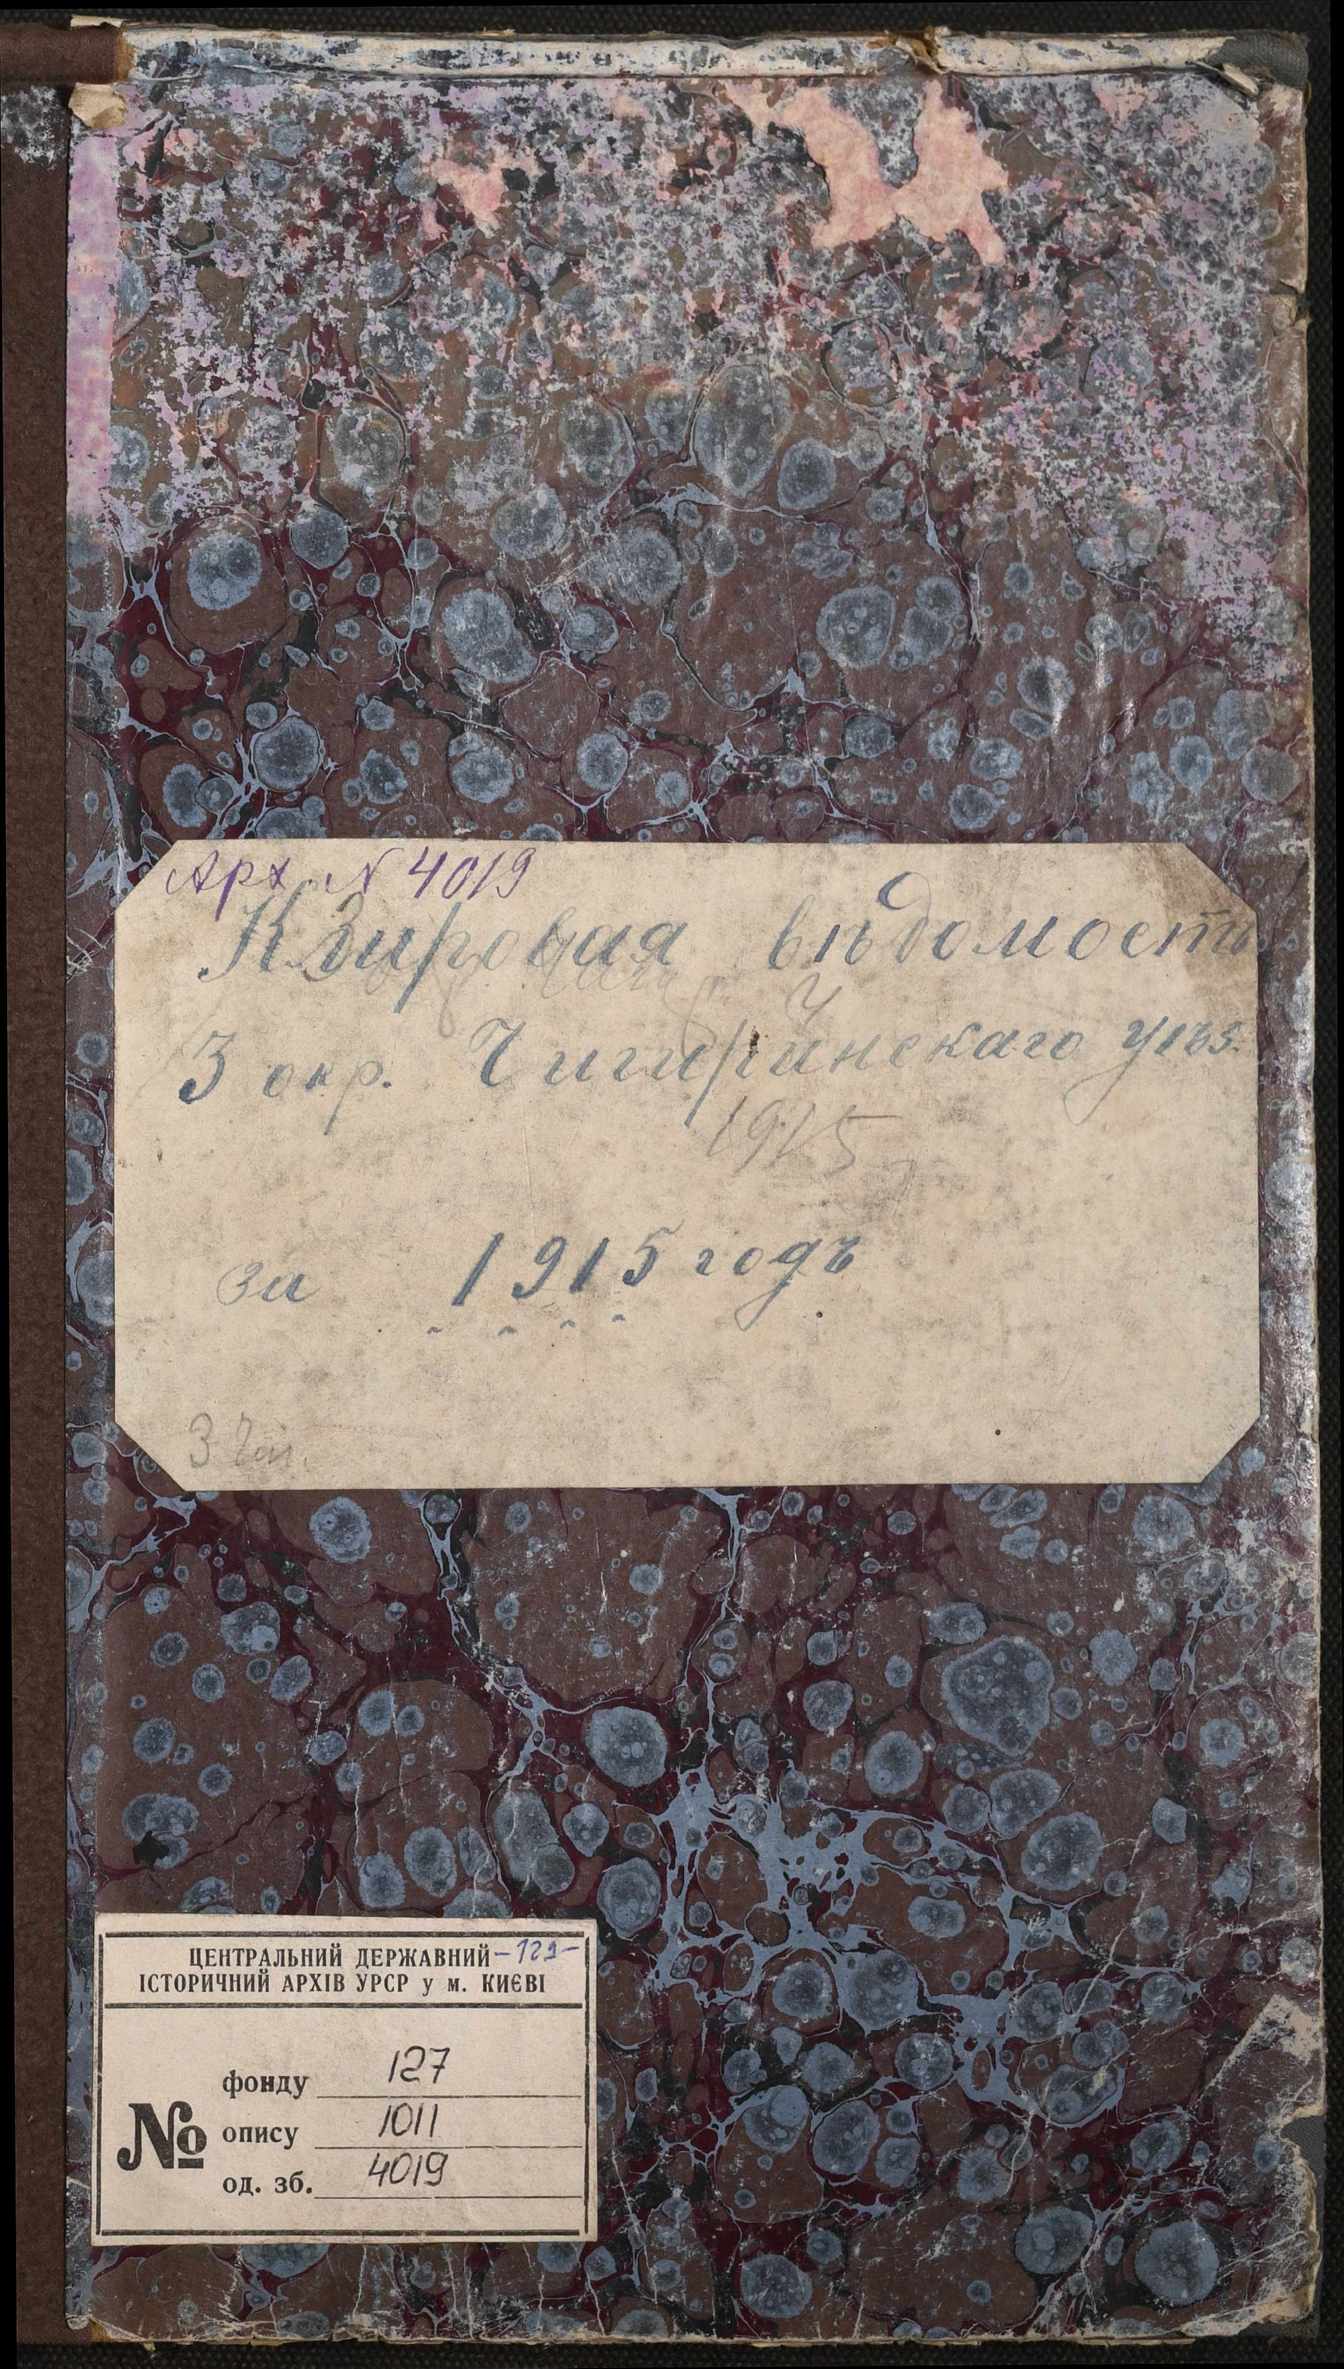 Арх. № 4019
Клировая вѣдомость
3 окр. Чигиринскаго уѣз.
1915
за 1915 годъ
3 Чиг.
ЦЕНТРАЛЬНИЙ ДЕРЖАВНИЙ -121-
ІСТОРИЧНИЙ АРХІВ УРСР у м. КИЄВІ
№
фонду 127
опису 1011
од. зб. 4019